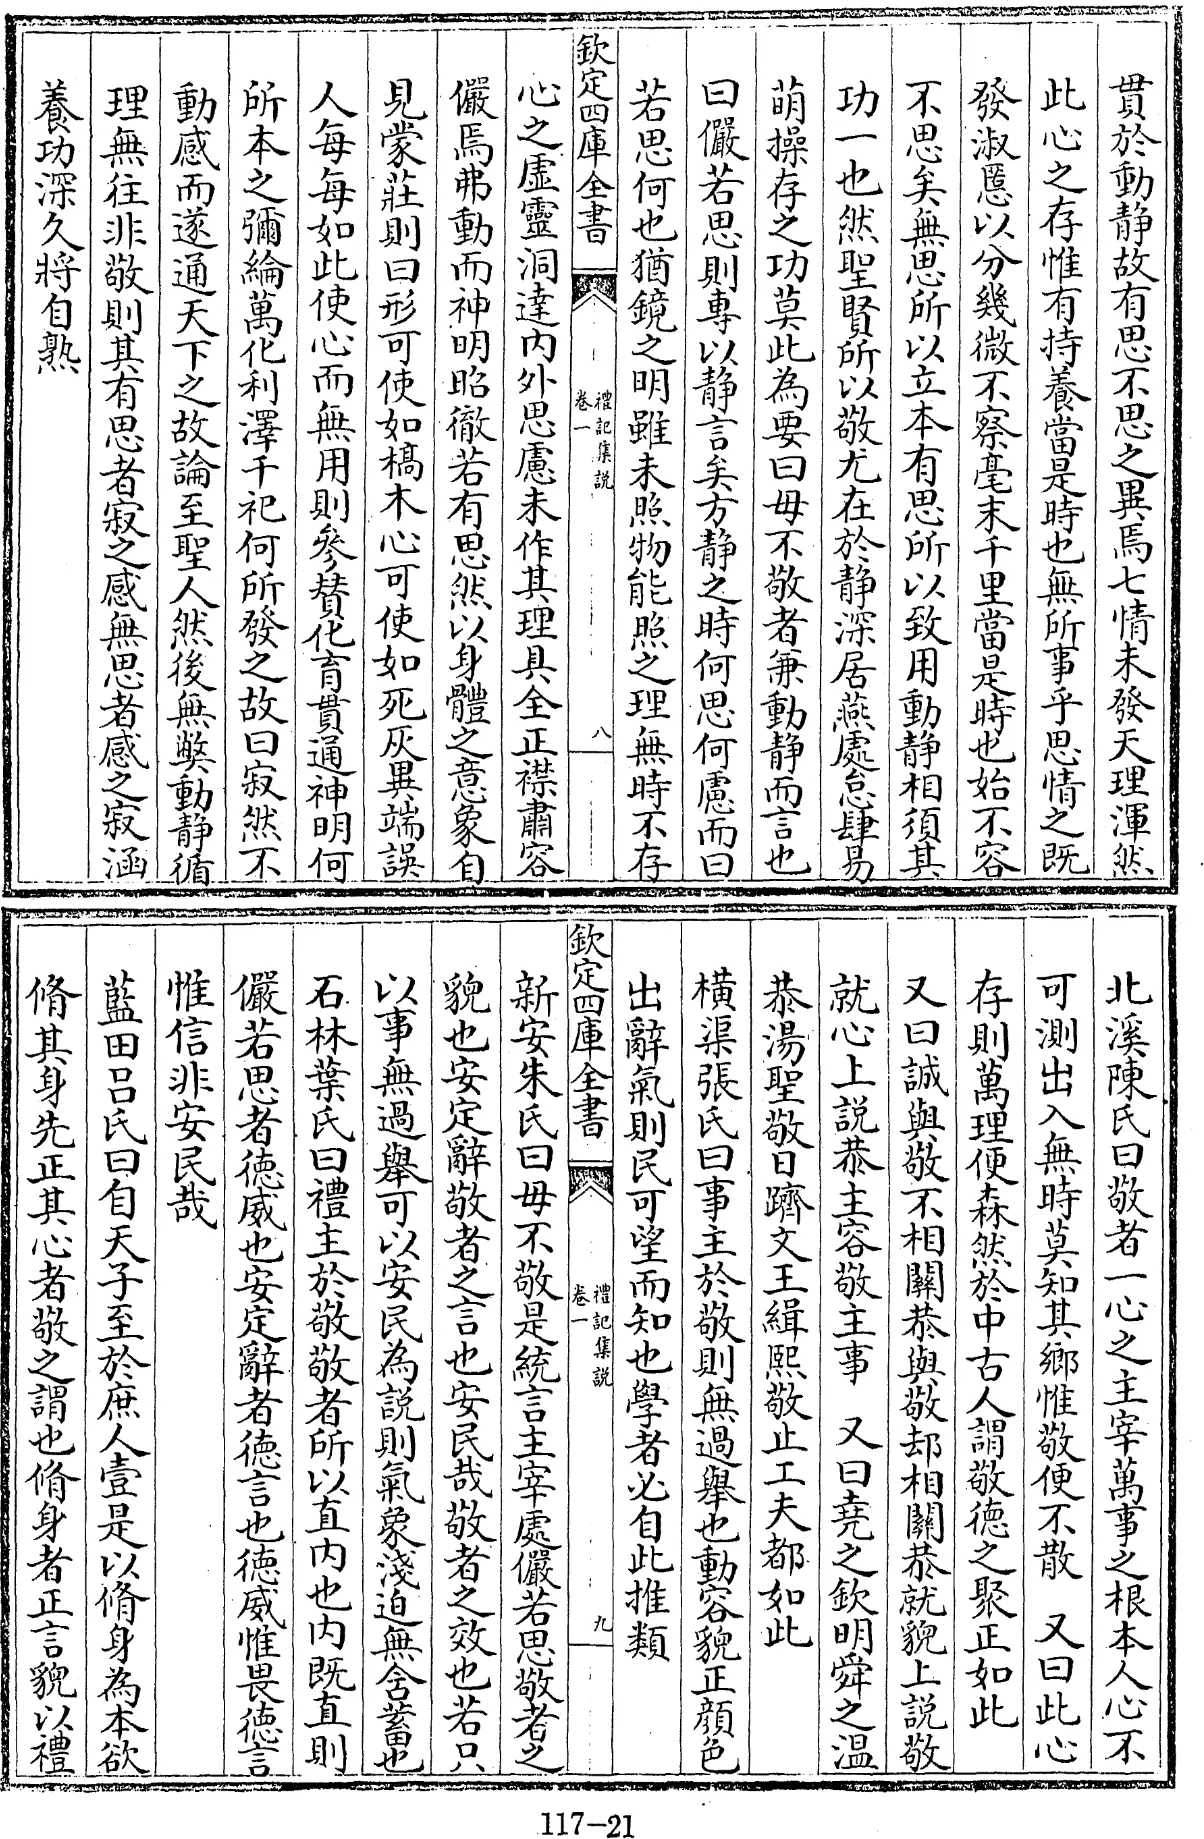 貫於動静故有思不思之異焉七情未發天理渾然
此心之存惟有持養當是時也無所事乎思情之既
發淑慝以分幾微不察毫末千里當是時也始不容
不思矣無思所以立本有思所以致用動静相須其
功一也然聖賢所以敬尤在於静深居燕處怠肆易
萌操存之功莫此為要曰毋不敬者兼動静而言也
曰儼若思則專以静言矣方静之時何思何慮而曰
若思何也猶鏡之明雖未照物能照之理無時不存
欽定四庫全書
禮記集說
卷一
八
心之虚靈洞達内外思慮未作其理具全正襟肅容
儼焉弗動而神明昭徹若有思然以身體之意象自
見蒙莊則曰形可使如槁木心可使如死灰異端誤
人每每如此使心而無用則參賛化育貫通神明何
所本之彌綸萬化利澤千祀何所發之故曰寂然不
動感而遂通天下之故論至聖人然後無弊動静循
理無往非敬則其有思者寂之感無思者感之寂涵
養功深久將自熟
北溪陳氏曰敬者一心之主宰萬事之根本人心不
可測出入無時莫知其鄉惟敬便不散 又曰此心
存則萬理便森然於中古人謂敬德之聚正如此
又曰誠與敬不相關恭與敬却相關恭就貌上説敬
就心上説恭主容敬主事 又曰堯之欽明舜之温
恭湯聖敬日躋文王緝熙敬止工夫都如此
横渠張氏曰事主於敬則無過舉也動容貌正顔色
出辭氣則民可望而知也學者必自此推類
欽定四庫全書
禮記集説
卷一
九
新安朱氏曰毋不敬是統言主宰處儼若思敬者之
貌也安定辭敬者之言也安民哉敬者之效也若只
以事無過舉可以安民為説則氣象淺迫無含蓄也
石林葉氏曰禮主於敬敬者所以直内也内既直則
儼若思者德威也安定辭者德言也德威惟畏德言
惟信非安民哉
藍田吕氏曰自天子至於庶人壹是以脩身為本欲
脩其身先正其心者敬之謂也脩身者正言貌以禮
117-21